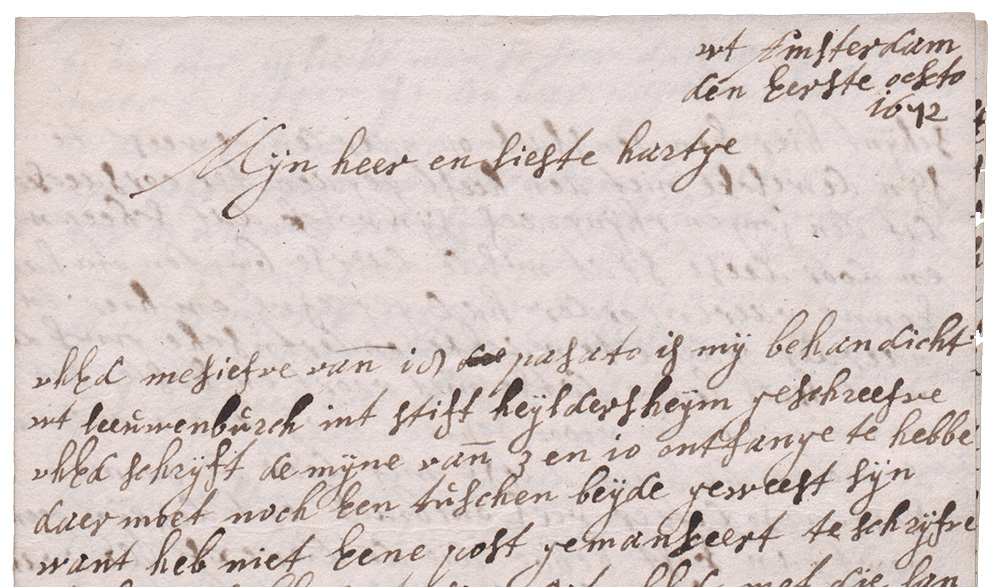 wt Amsterdam
den Eerste octto
1672
Mijn heer en liefste hartge
uhEd mesiefve van 18 pasato is mij behandicht
wt leeuwenburch int stift heyldersheym geschreefve
uhEd schryft de myne van 3 en 10 ontfange te hebbe
daer moet noch Een tuschen beyde geweest sijn
want heb niet Eene post gemankeert te schryfve